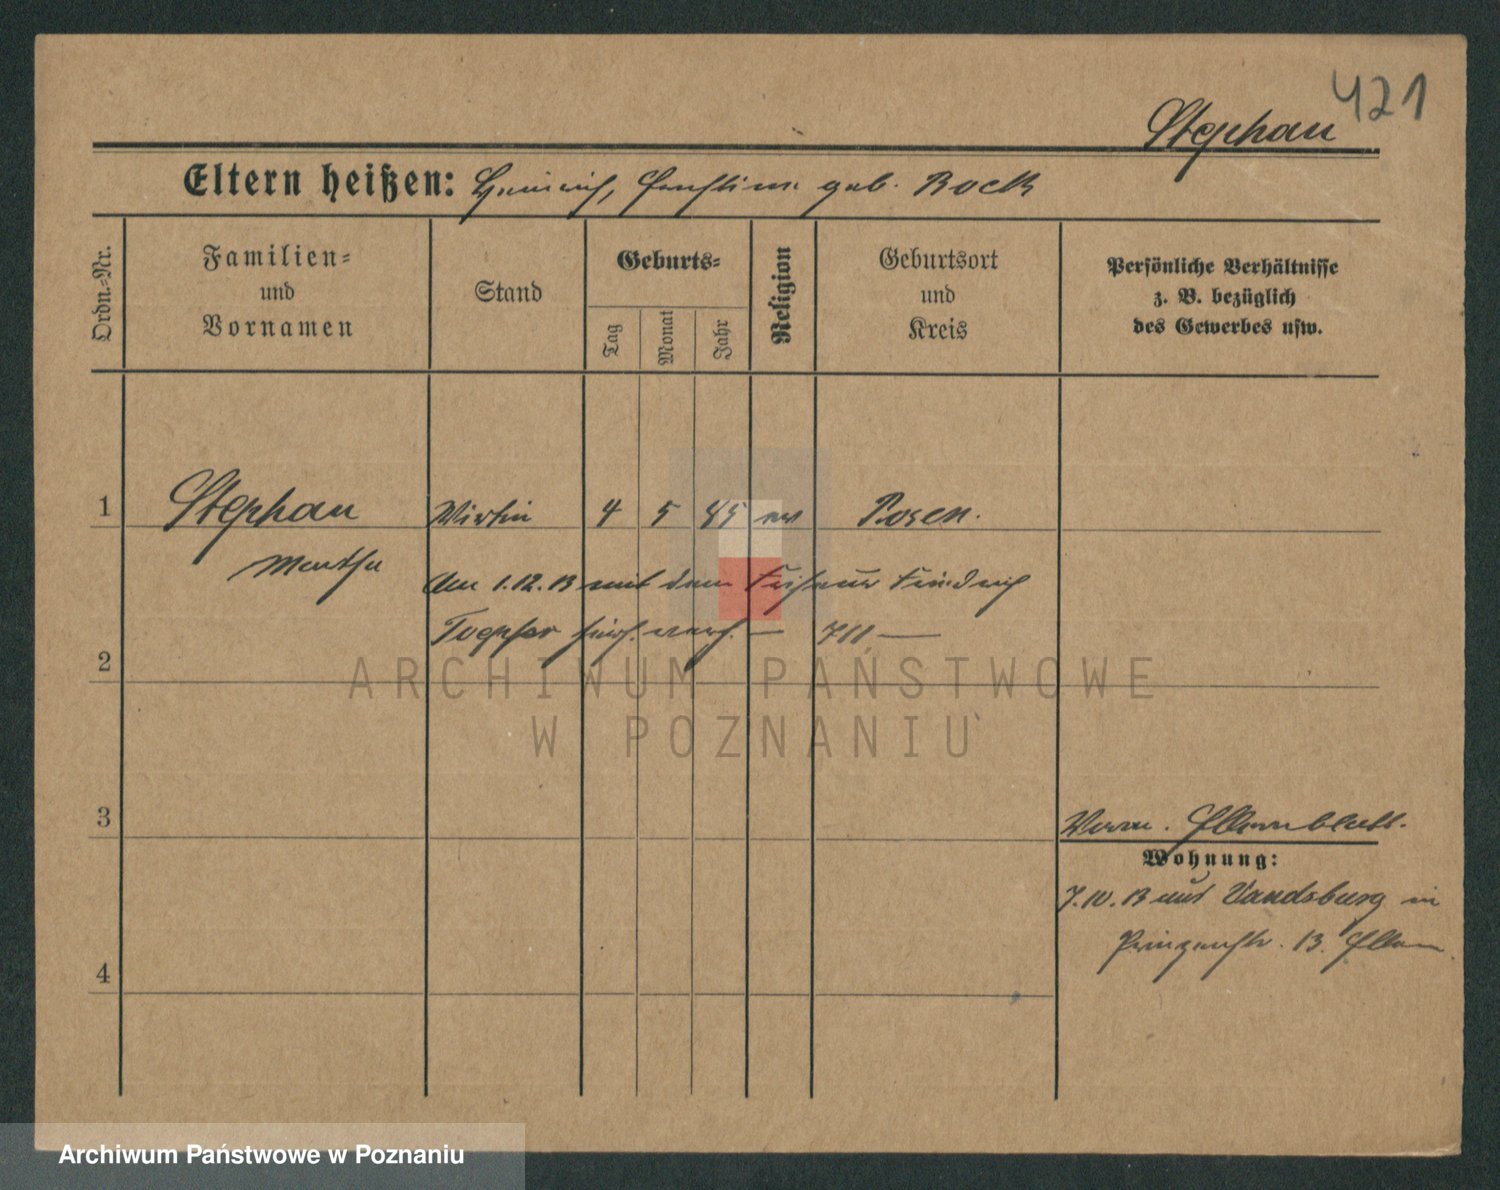 421
Stephan
Eltern heißen: Heinrich, Ernstine geb. Bock
Ordn.-Nr.
Familien- und Vornamen
Stand
Geburts-
Tag
Monat
Jahr
Religion
Geburtsort und Kreis
Persönliche Verhältnisse
z. B. bezüglich
des Gewerbes usw.
1 Stephan Wirtin 4 5 85 ev Posen.
Martha
Am 1.12.13 mit dem Friseur Friedrich
Toepfer 711
2
ARCHIWUM PAŃSTWOWE
W POZNANIU
3
Verm. Elternblatt.
Wohnung:
7.10.13 aus Vandsburg in
Prinzenstr. 13. Eltern
4
Archiwum Państwowe w Poznaniu